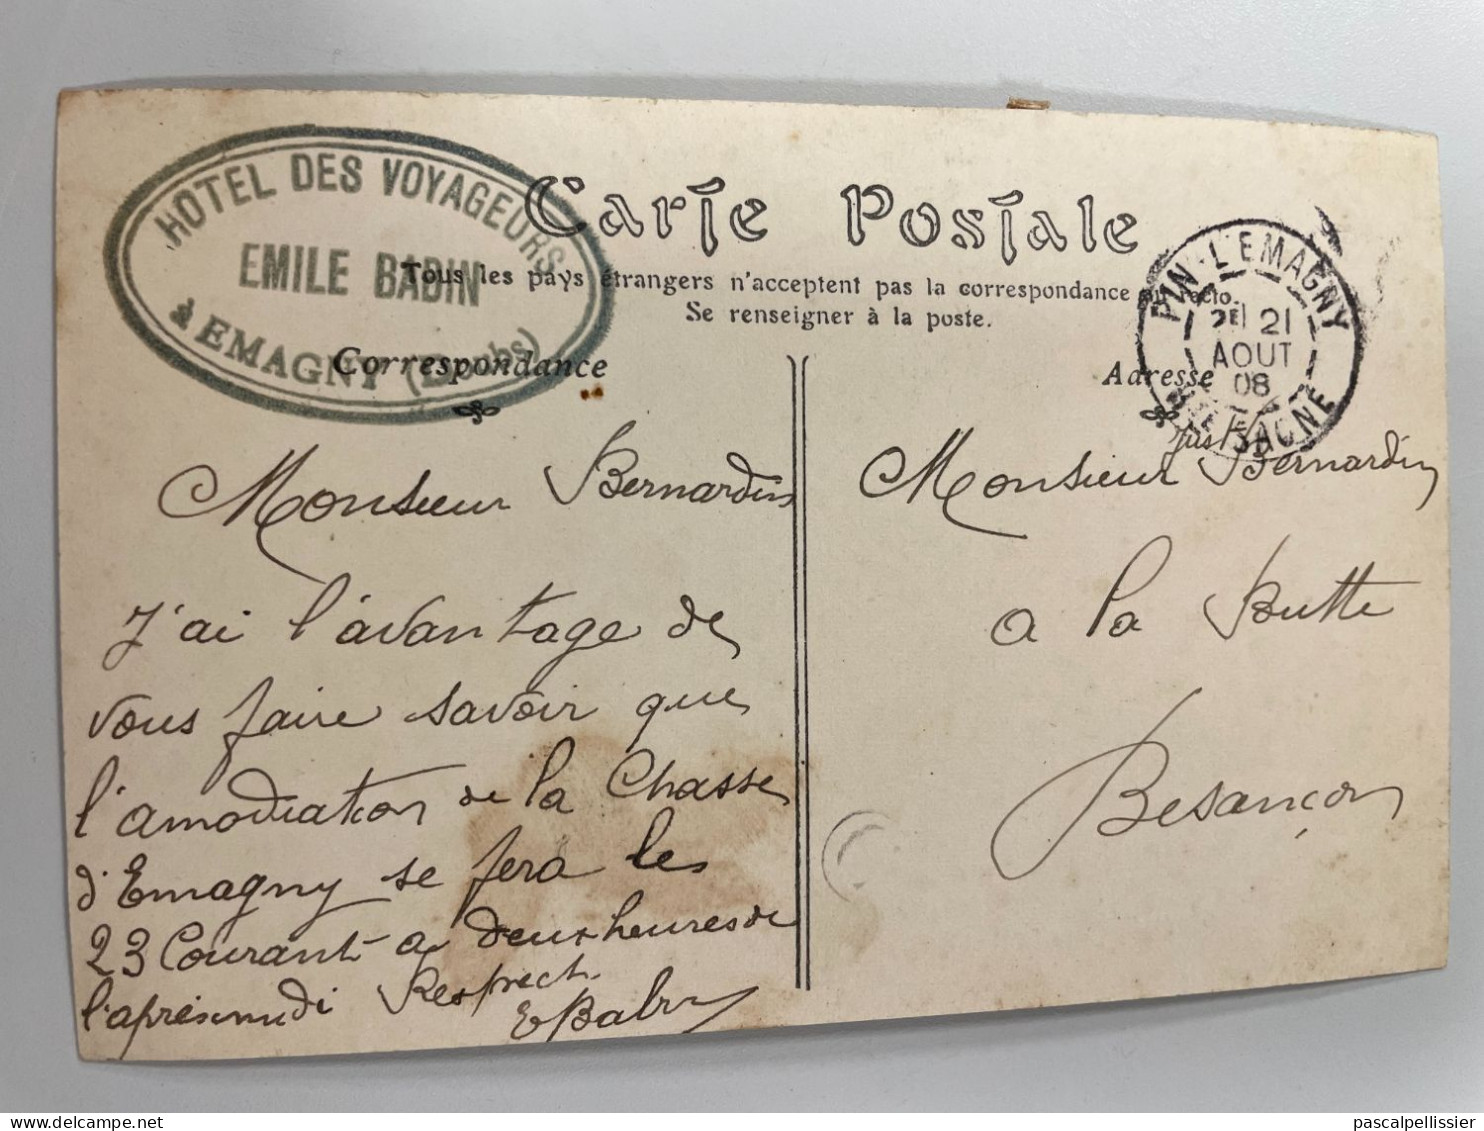 HOTEL DES VOYAGEURS
EMILE BABIN
à EMAGNY (Doubs)
Carte Postale
Tous les pays étrangers n'acceptent pas la correspondance au recto.
Se renseigner à la poste.
Correspondance
Adresse
PIN-L'EMAGNY
2E 21
AOUT
08
HTE SAONE
Monsieur Bernardin
J'ai l'avantage de
vous faire savoir que
l'amodiation de la Chasse
d'Emagny se fera le
23 Courant a deux heures de
l'après midi Respect.
E Babin
Just
Monsieur Bernardin
a la Butte
Besançon
pascalpellissier